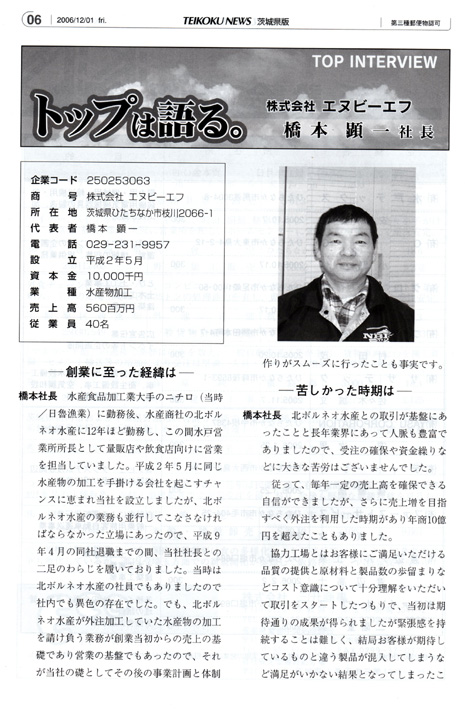 06
2006/12/01 fri.
TEIKOKU NEWS 茨城県版
第三種郵便物認可
TOP INTERVIEW
トップは語る。
株式会社 エヌビーエフ
橋本 顕一 社長
企業コード 250253063
商号 株式会社 エヌビーエフ
所在地 茨城県ひたちなか市枝川2066-1
代表者 橋本 顕一
電話 029-231-9957
設立 平成2年5月
資本金 10,000千円
業種 水産物加工
売上高 560百万円
従業員 40名
―創業に至った経緯は―
橋本社長 水産食品加工業大手のニチロ（当時
／日魯漁業）に勤務後、水産商社の北ボル
ネオ水産に12年ほど勤務し、この間水戸営
業所所長として量販店や飲食店向けに営業
を担当していました。平成2年5月に同じ
水産物の加工を手掛ける会社を起こすチャ
ンスに恵まれ当社を設立しましたが、北ボ
ルネオ水産の業務も並行してこなさなけれ
ばならなかった立場にあったので、平成9
年4月の同社退職までの間、当社社長との
二足のわらじを履いておりました。当時は
北ボルネオ水産の社員でもありましたので
社内でも異色の存在でした。でも、北ボル
ネオ水産が外注加工していた水産物の加工
を請け負う業務が創業当初からの売上の基
礎であり営業の基盤でもあったので、それ
が当社の礎としてその後の事業計画と体制
作りがスムーズに行ったことも事実です。
―苦しかった時期は―
橋本社長 北ボルネオ水産との取引が基盤にあ
ったことと長年業界にあって人脈も豊富で
ありましたので、受注の確保や資金繰りな
どに大きな苦労はございませんでした。
従って、毎年一定の売上高を確保できる
自信ができましたが、さらに売上増を目指
すべく外注を利用した時期があり年商10億
円を超えたこともありました。
協力工場とはお客様にご満足いただける
品質の提供と原材料と製品数の歩留まりな
どコスト意識について十分理解をいただい
て取引をスタートしたつもりで、当初は期
待通りの成果が得られましたが緊張感を持
続することは難しく、結局お客様が期待し
ているものと違う製品が混入してしまうな
ど満足がいかない結果となってしまったこ